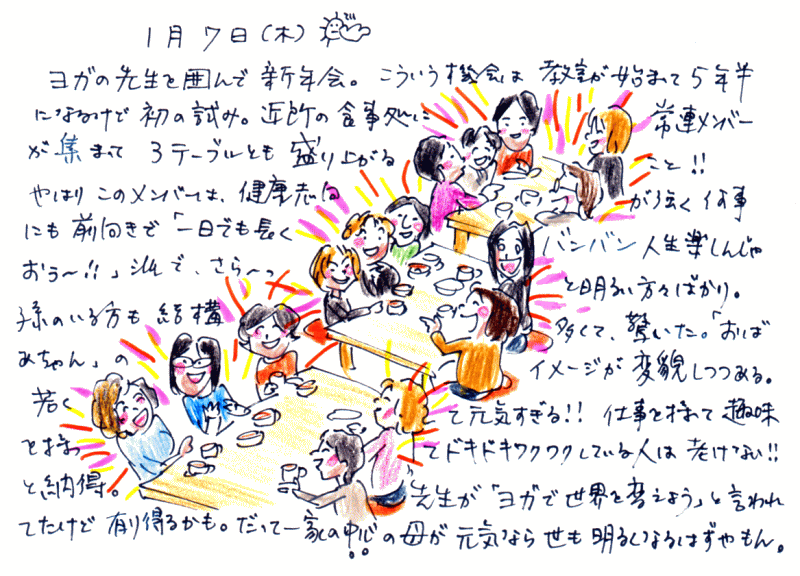 1月7日(木)
ヨガの先生を囲んで新年会。こういう機会は 教室が始まって5年半
になるけど初の試み。近所の食事処に 常連メンバー
が集まって 3テーブルとも盛り上がる こと!!
やはりこのメンバーは、健康志向 が強く仕事
にも前向きで「一日でも長く バンバン人生楽しんじゃ
おう〜!!」ノリで、さら〜っ と明るい方々ばかり。
孫のいる方も結構 多くて、驚いた。「おば
あちゃん」の イメージが変貌しつつある。
若く て元気すぎる!! 仕事を持って趣味
を持っ てドキドキワクワクしている人は老けない!!
と納得。 先生が「ヨガで世界を変えよう」と言われ
てたけど有り得るかも。だって一家の中心の母が元気なら世も明るくなるはずやもん。